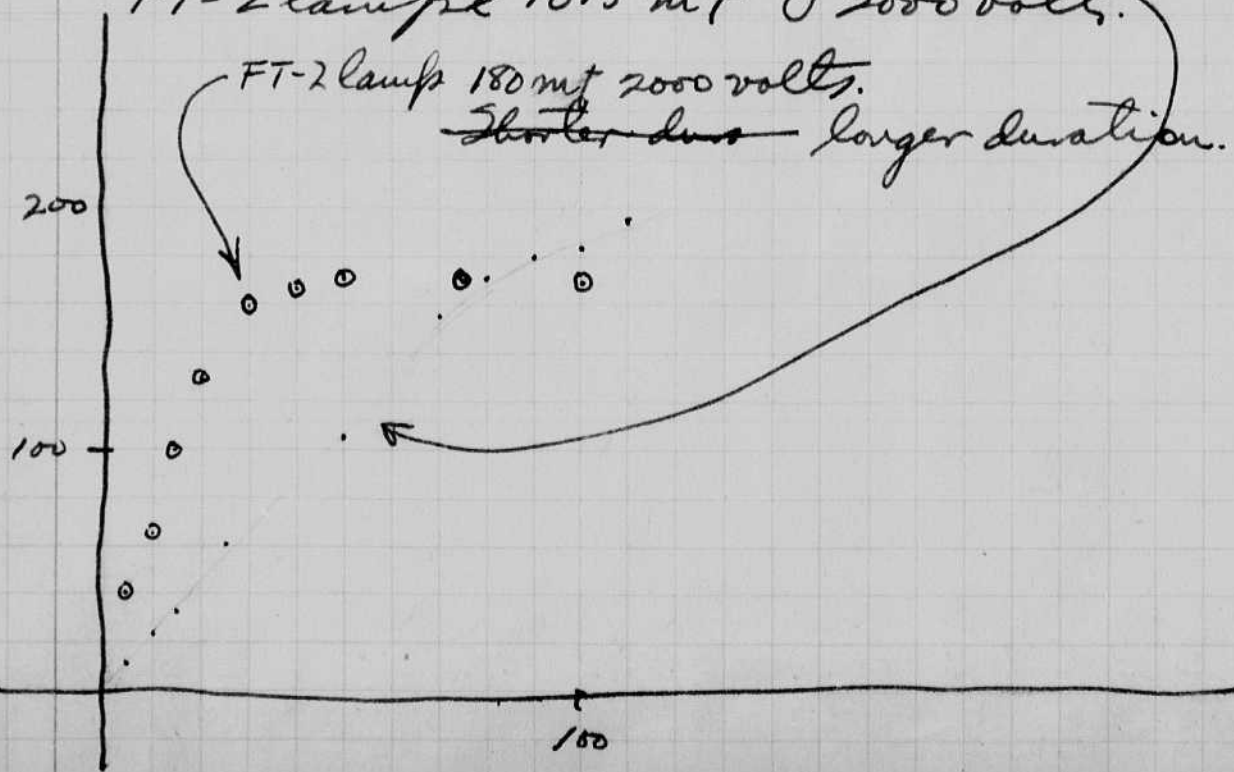 FT-2 lamp 2000 volts.
FT-2 lamp 180 mf 2000 volts.
Shorter dura longer duration.
200
100
100